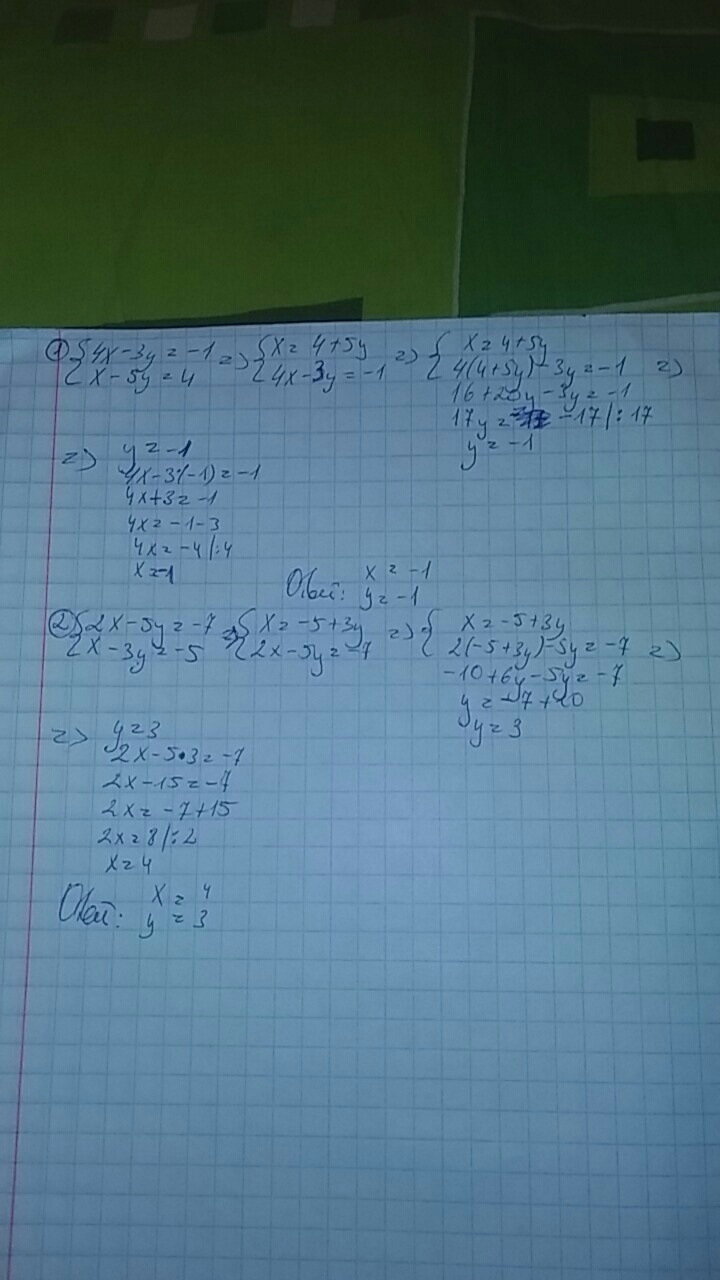 ① {4x-3y=-1 => {x=4+5y => {x=4+5y
{x-5y=4 {4x-3y=-1 {4(4+5y)-3y=-1 =>
16+20y-3y=-1
17y= -17/:17
y=-1
=> y=-1
4x-3·(-1)=-1
4x+3=-1
4x=-1-3
4x=-4/:4
x=-1
Ответ: x=-1
y=-1
② {2x-5y=-7 => {x=-5+3y => {x=-5+3y
{x-3y=-5 {2x-5y=-7 {2(-5+3y)-5y=-7 =>
-10+6y-5y=-7
y=-7+10
y=3
=> y=3
2x-5·3=-7
2x-15=-7
2x=-7+15
2x=8/:2
x=4
Ответ: x=4
y=3